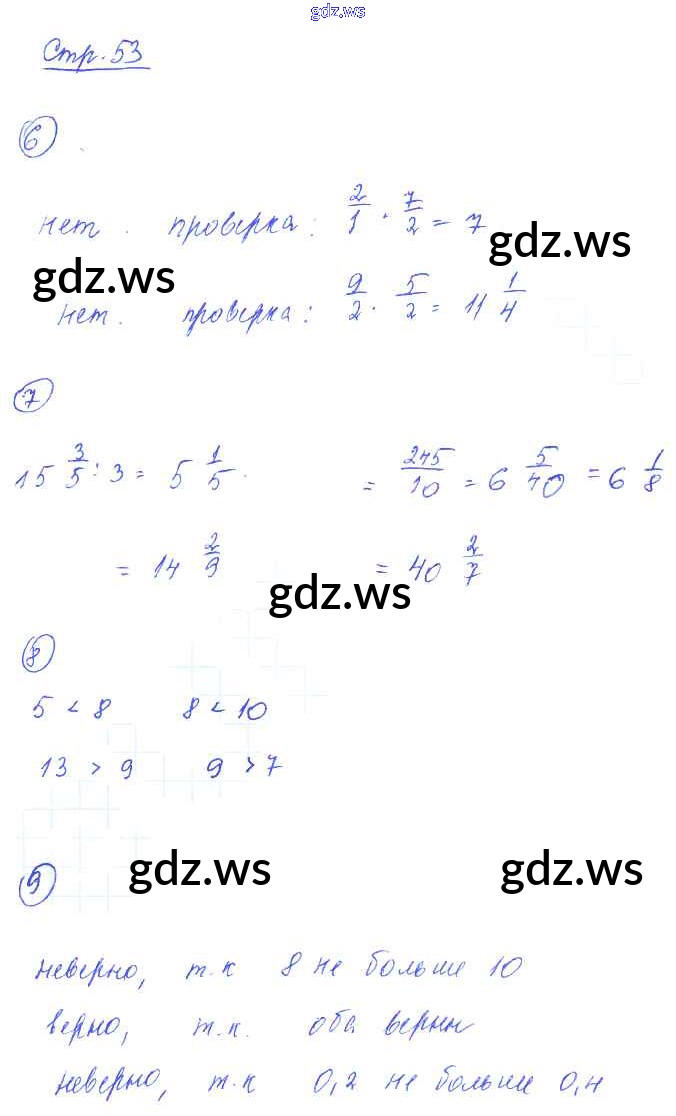 gdz.ws
Стр. 53
6
нет. проверка: 2/1 · 7/2 = 7
gdz.ws
gdz.ws
нет. проверка: 9/2 · 5/2 = 11 1/4
7
15 3/5 : 3 = 5 1/5. = 245/10 = 6 5/40 = 6 1/8
= 14 2/9 = 40 2/7
gdz.ws
8
5 < 8 8 < 10
13 > 9 9 > 7
gdz.ws gdz.ws
9
неверно, т.к 8 не больше 10
верно, т.к. оба верны
неверно, т.к 0,2 не больше 0,4